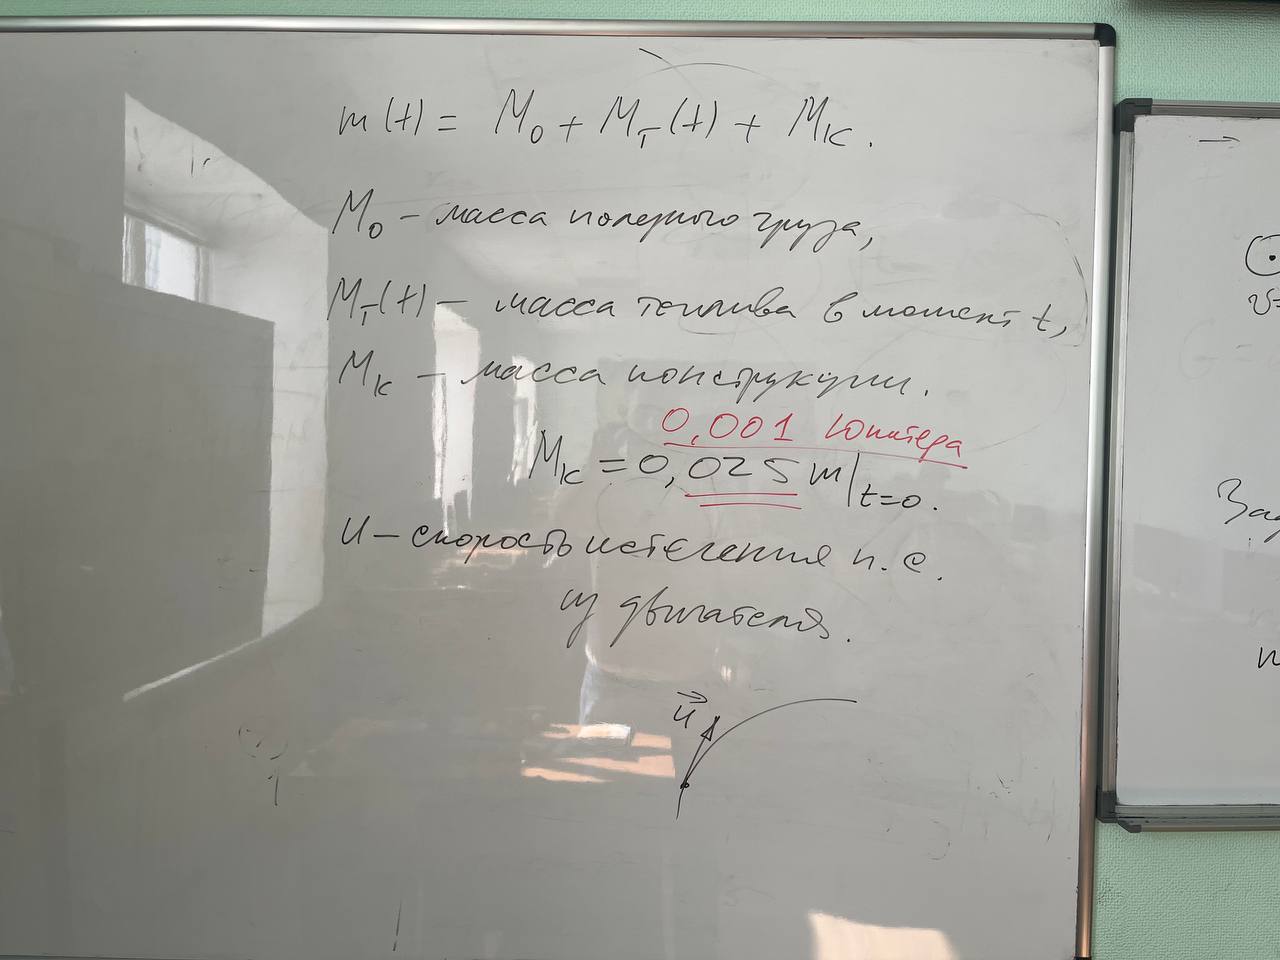 m(t) = M₀ + M_T(t) + M_K.
M₀ – масса полезного груза,
M_T(t) – масса топлива в момент t,
M_K – масса конструкции.
0,001 Юпитера
M_K = 0,025 m|t=0.
u – скорость истечения п.с.
из двигателя.
u
За